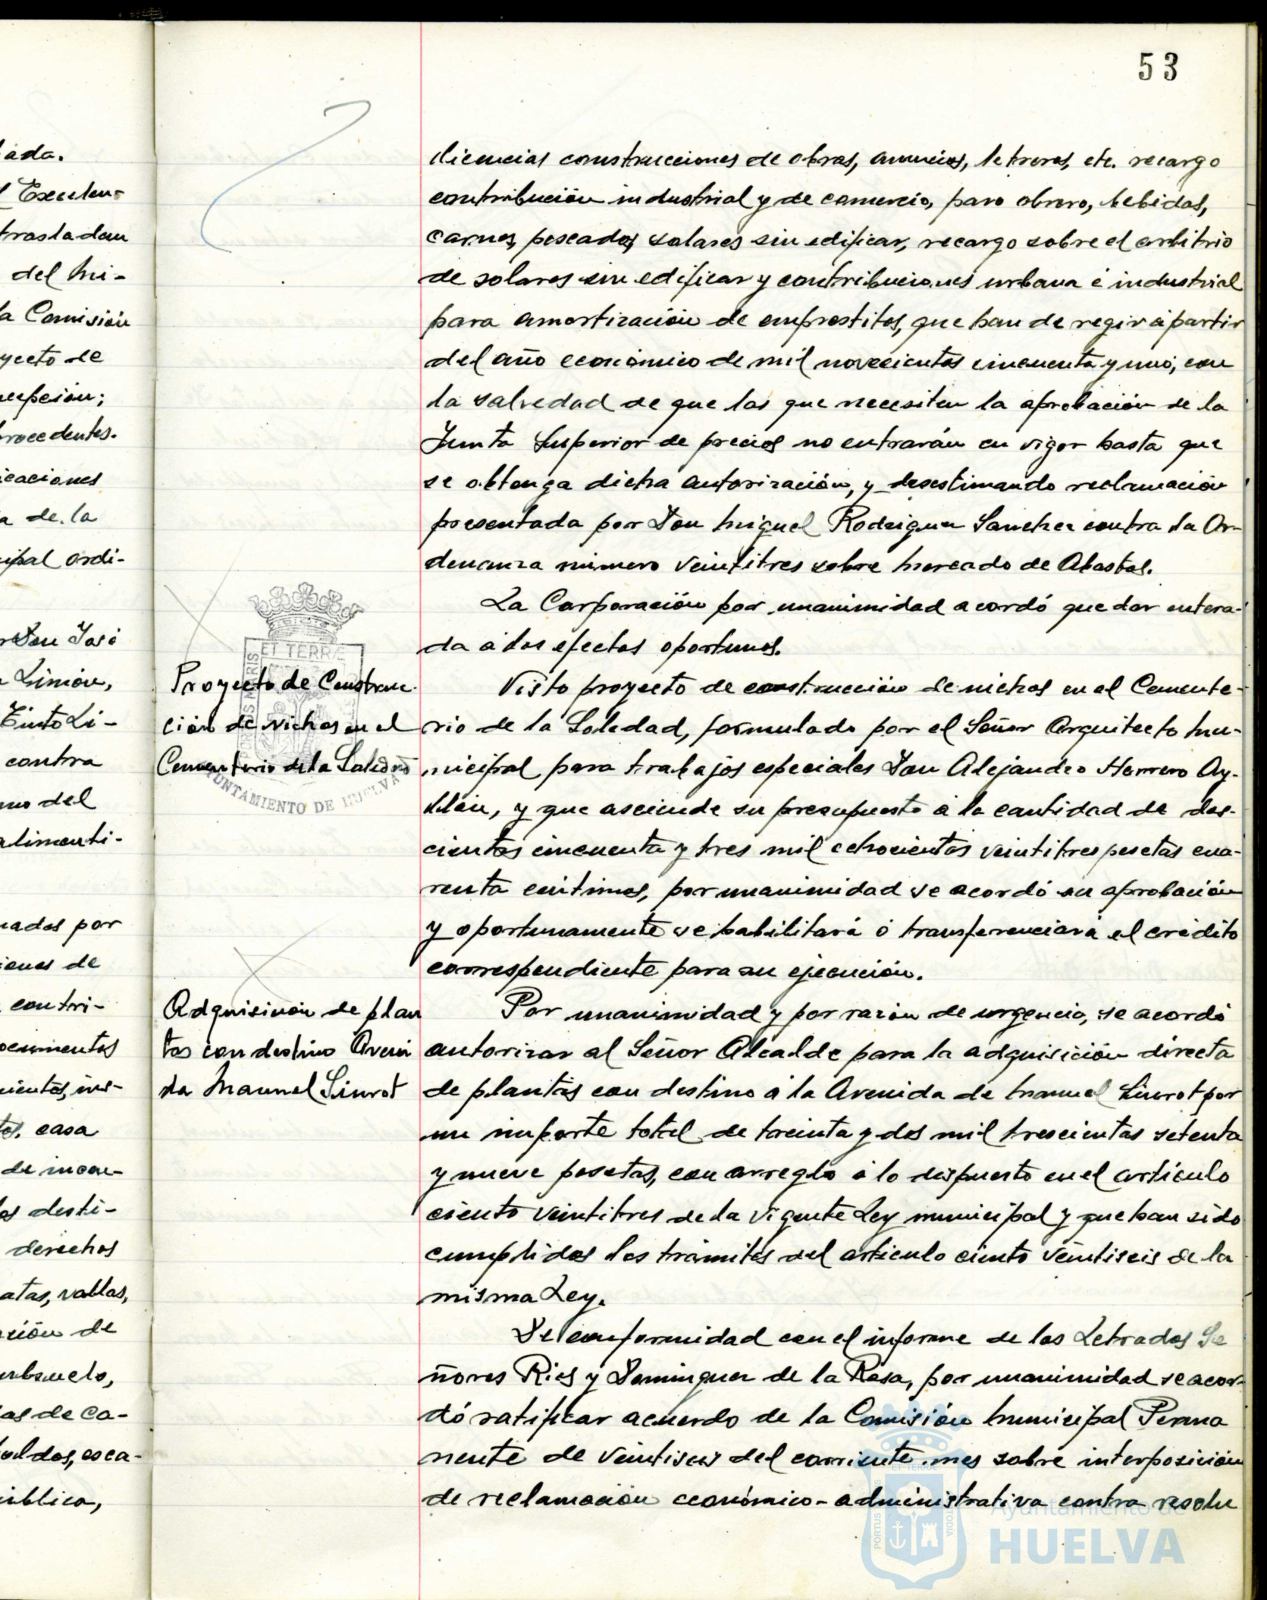 53
licencias construcciones de obras, anuncios, letreros, etc. recargo
contribución industrial y de comercio, paro obrero, bebidas,
carnes, pescados, solares sin edificar, recargo sobre el arbitrio
de solares sin edificar y contribuciones urbana é industrial
para amortización de empréstitos, que han de regir á partir
del año económico de mil novecientos cincuenta y uno; con
la salvedad de que las que necesiten la aprobación de la
Junta Superior de precios no entrarán en vigor hasta que
se obtenga dicha autorización, y desestimando reclamación
presentada por Don Miguel Rodriguez Sanchez contra la Or-
denanza número veintitres sobre Mercado de Abastos.
La Corporación por unanimidad acordó quedar entera-
da á los efectos oportunos.
Proyecto de Construc
ción de nichos en el
Cementerio de la Soledad
Visto proyecto de construcción de nichos en el Cemente-
rio de la Soledad, formulado por el Señor Arquitecto Mu-
nicipal para trabajos especiales Don Alejandro Herrero Ay-
llón, y que asciende su presupuesto á la cantidad de dos-
cientas cincuenta y tres mil ochocientas veintitres pesetas cua-
renta céntimos, por unanimidad se acordó su aprobación
y oportunamente se habilitará ó transferenciará el crédito
correspondiente para su ejecución.
Adquisición de plan
tas con destino Aveni
da Manuel Siurot
Por unanimidad y por razón de urgencia, se acordó
autorizar al Señor Alcalde para la adquisición directa
de plantas con destino á la Avenida de Manuel Siurot por
un importe total de treinta y dos mil trescientas setenta
y nueve pesetas, con arreglo á lo dispuesto en el artículo
ciento veintitres de la vigente Ley municipal y que han sido
cumplidos los trámites del artículo ciento veintiseis de la
misma Ley.
De conformidad con el informe de los Letrados Se
ñores Rios y Dominguez de la Rosa, por unanimidad se acor-
dó ratificar acuerdo de la Comisión Municipal Perma
nente de veintiseis del corriente mes sobre interposición
de reclamación económico-administrativa contra resolu
ET TERRÆ
AYUNTAMIENTO DE HUELVA
Ayuntamiento de
HUELVA
lada.
l Excelen-
trasladan
del Mi-
a Comisión
yecto de
cepción;
procedentes.
icaciones
a de la
ipal ordi-
r Don José
Limón,
Tinto Li-
contra
mo del
alimenti-
nados por
iones de
contri-
ocumentos
casa
de incen-
os desti-
derechos
atas, vallas,
ción de
ubsuelo,
as de ca-
oldos, esca-
ública,